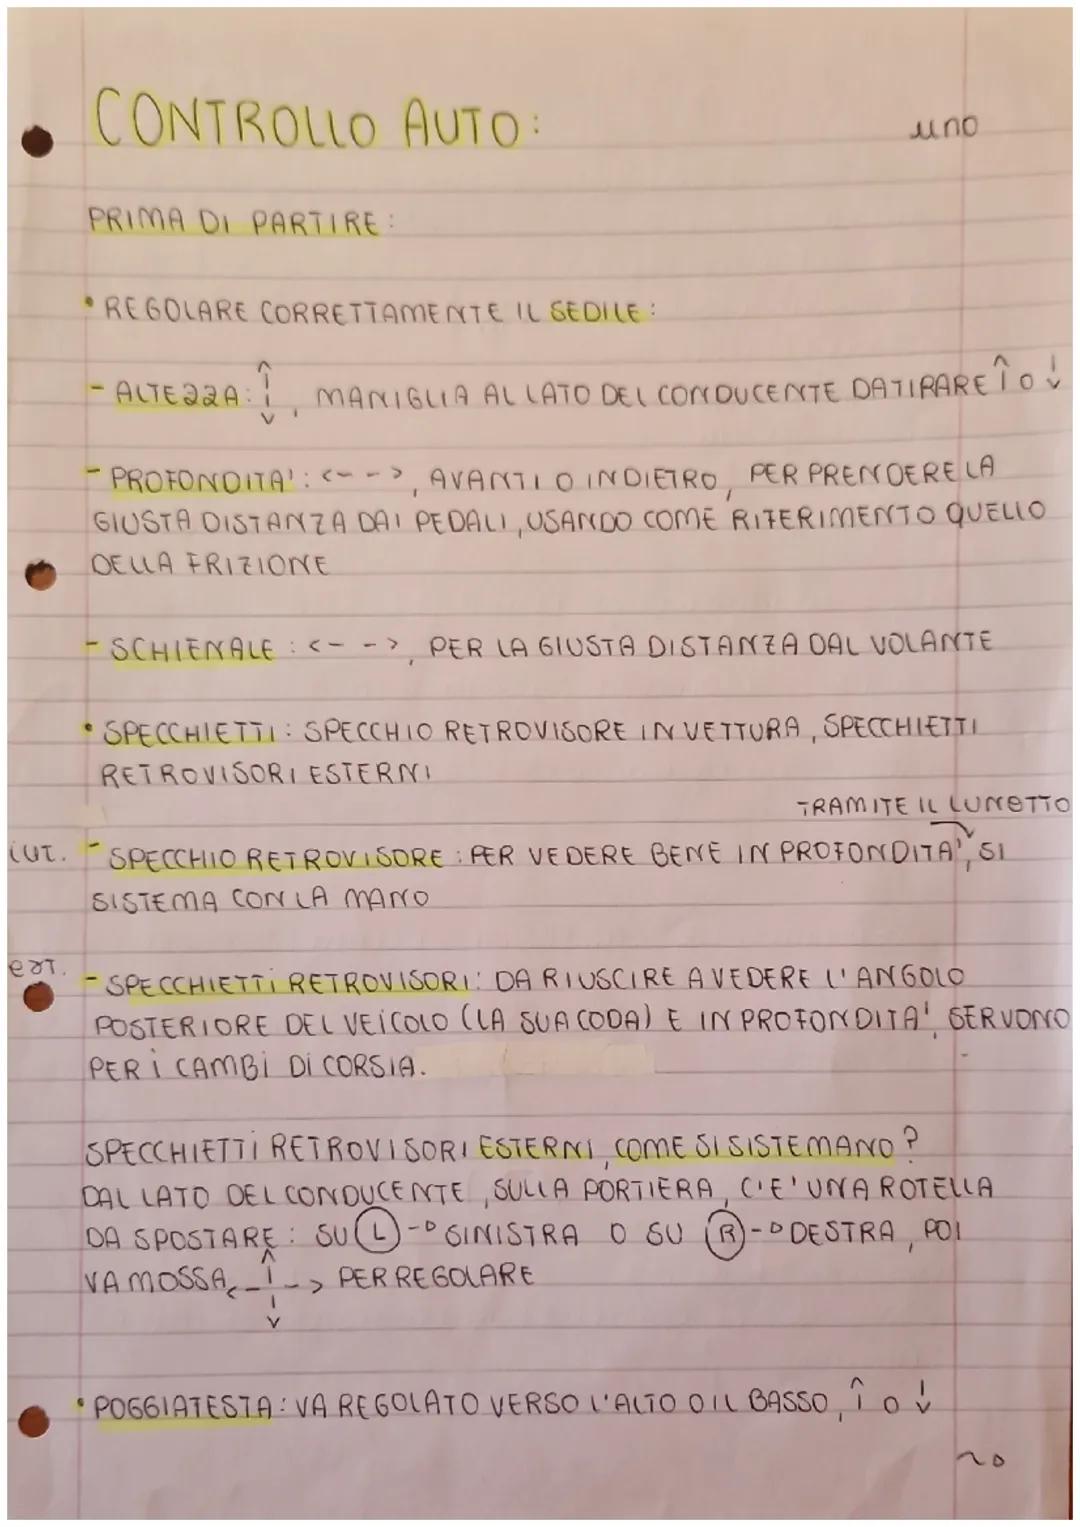 CONTROLLO AUTO:
uno
PRIMA DI PARTIRE:
• REGOLARE CORRETTAMENTE IL SEDILE:
- ALTEZZA: ↕, MANIGLIA AL LATO DEL CONDUCENTE DA TIRARE ↑ O ↓
- PROFONDITA': <-->, AVANTI O INDIETRO, PER PRENDERE LA
GIUSTA DISTANZA DAI PEDALI, USANDO COME RIFERIMENTO QUELLO
DELLA FRIZIONE
- SCHIENALE: <-->, PER LA GIUSTA DISTANZA DAL VOLANTE
• SPECCHIETTI: SPECCHIO RETROVISORE IN VETTURA, SPECCHIETTI
RETROVISORI ESTERNI
TRAMITE IL LUNOTTO
int. - SPECCHIO RETROVISORE: PER VEDERE BENE IN PROFONDITA', SI
SISTEMA CON LA MANO
est. - SPECCHIETTI RETROVISORI: DA RIUSCIRE A VEDERE L'ANGOLO
POSTERIORE DEL VEICOLO (LA SUA CODA) E IN PROFONDITA', SERVONO
PER I CAMBI DI CORSIA.
SPECCHIETTI RETROVISORI ESTERNI, COME SI SISTEMANO?
DAL LATO DEL CONDUCENTE, SULLA PORTIERA, C'E' UNA ROTELLA
DA SPOSTARE: SU L → SINISTRA O SU R → DESTRA, POI
VA MOSSA ←↕→ PER REGOLARE
• POGGIATESTA: VA REGOLATO VERSO L'ALTO O IL BASSO, ↑ O ↓